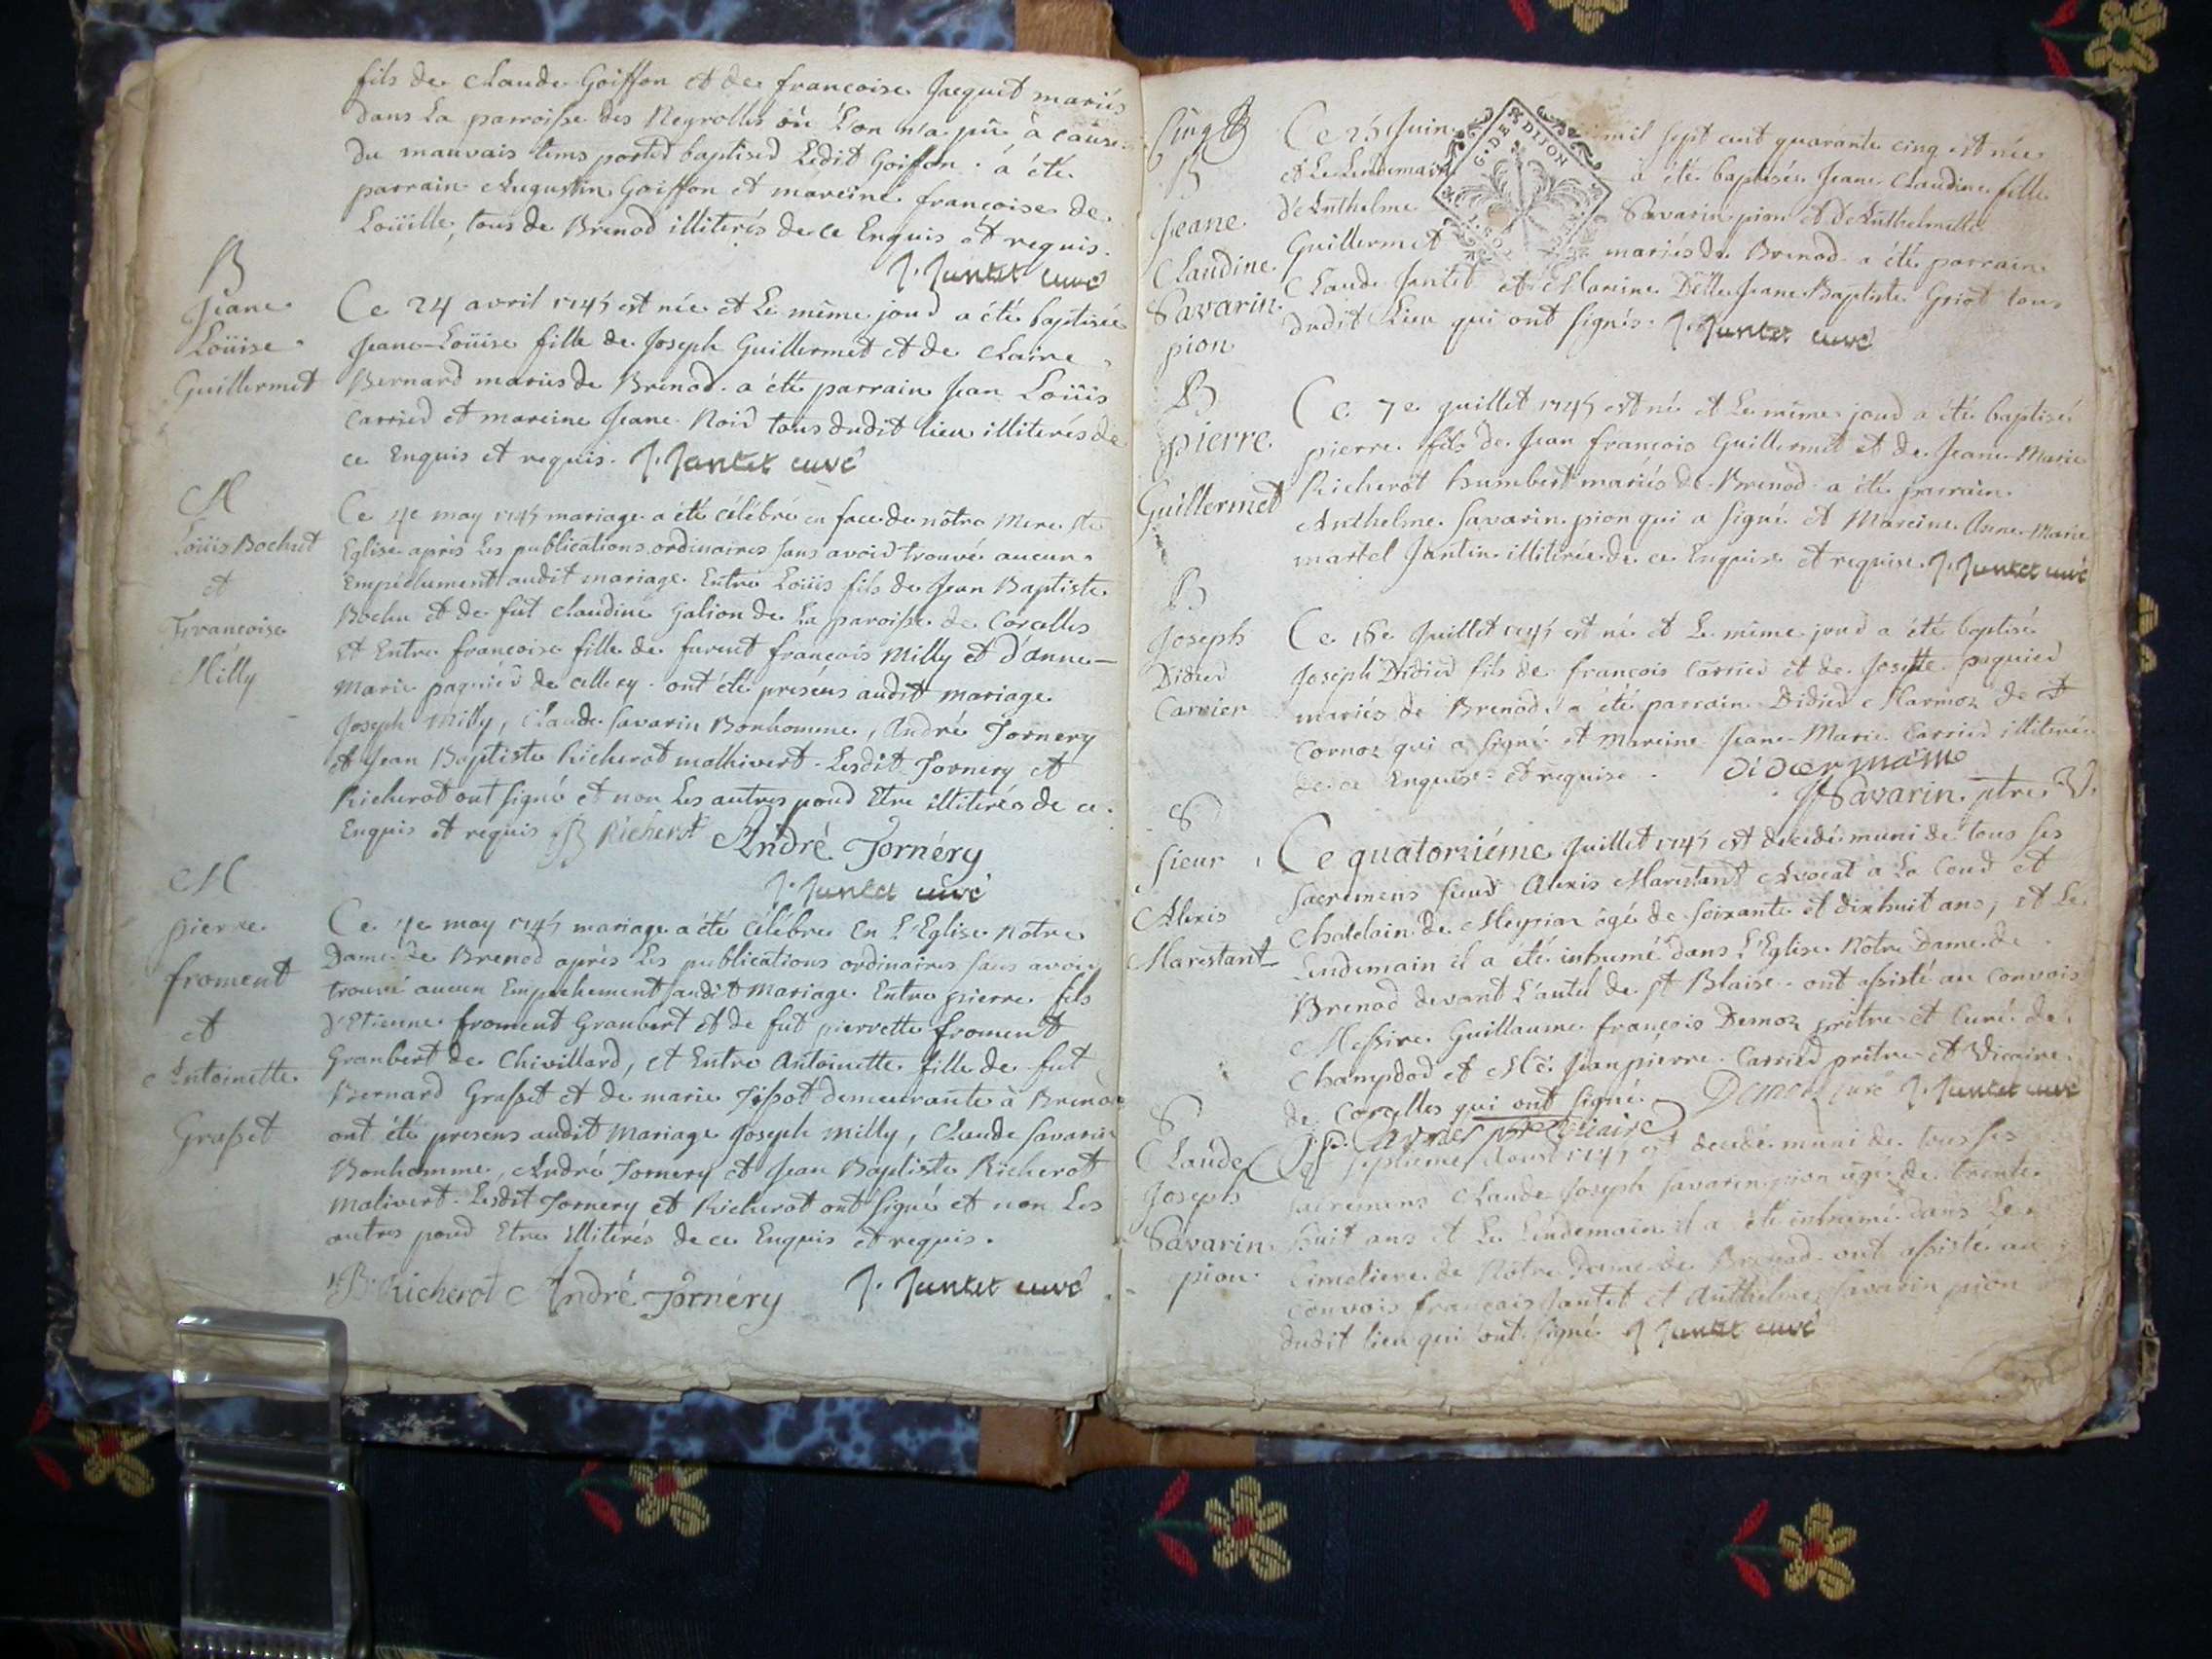 fils de Claude Goiffon et de francoise Jacquet mariés
dans La parroisse des Neyrolles où L'on n'a pû à cause
du mauvais tems porter baptiser Ledit Goiffon. a été
parrain Augustin Goiffon et mareine francoise de
Loüille, tous de Brenod illiterés de ce Enquis et requis.
J. Jantet curé
B
Jeane
Loüise
Guillermet
Ce 24 avril 1745 est née et Le même jour a été baptisée
Jeane-Loüise fille de Joseph Guillermet et de Claire
Bernard mariés de Brenod. a été parrain Jean Loüis
Carrier et mareine Jeane Noir tous dudit lieu illiterés de
ce Enquis et requis. J. Jantet curé
M
Loüis Bochut
et
Francoise
Milly
Ce 4e may 1745 mariage a été célébré en face de nôtre Mere Ste
Eglise après Les publications ordinaires sans avoir trouvé aucun
Empéchement audit mariage. Entre Loüis fils de Jean Baptiste
Bochu et de fut Claudine Galion de La paroisse de Corcelles
et Entre francoise fille de furent francois Milly et d'anne-
Marie pagnier de ont été presens audit mariage
Joseph Milly, Claude Savarin Bonhomme, André Tornery
et Jean Baptiste Richerot malhivert. Lesdit Tornery et
Richerot ont signé et non Les autres pour Etre illiterés de ce
Enquis et requis JB Richerot André Tornéry
J. Jantet curé
M
pierre
froment
et
Antoinette
Grasset
Ce 4e may 1745 mariage a été célébre En L'Eglise Nôtre
Dame de Brenod après Les publications ordinaires sans avoir
trouvé aucun Empechement audit Mariage Entre pierre fils
d'Etienne froment Graubert et de fut pierrette froment
Graubert de Chivillard, et Entre Antoinette fille de fut
Bernard Grasset et de marie Tissot demeurante à Brenod
ont été presens audit Mariage Joseph Milly, Claude Savarin
Bonhomme, André Tornery et Jean Baptiste Richerot
Malivert. Lesdit Tornery et Richerot ont signé et non Les
autres pour Etre illiterés de ce Enquis et requis.
J.B. Richerot André Tornéry J. Jantet curé
Cinq
B
Jeane
Claudine
Savarin
pion
G. DE DIJON
Ce 25 Juin mil sept cent quarante cinq est née
et Le Lendemain a été baptisée Jeane Claudine fille
d'Anthelme Savarin pion et d'Anthelmette
Guillermet mariés de Brenod a été parrain
Claude Jantet et Mareine Delle Jeane Baptiste Griot tous
dudit Lieu qui ont signés. J. Jantet curé
B
pierre
Guillermet
Ce 7e juillet 1745 est né et Le même jour a été baptisé
pierre fils de Jean francois Guillermet et de Jeane-Marie
Richerot humbert mariés de Brenod a été parrain
Anthelme Savarin pion qui a signé et Mareine Anne-Marie
martel Jantin illiterée de ce Enquise et requise J. Jantet curé
B
Joseph
Didier
Carrier
Ce Juillet 1745 est né et Le même jour a été baptisé
Joseph Didier fils de francois Carrier et de Josette paquier
mariés de Brenod a été parrain Didier de
Cornoz qui a signé et Mareine Jeane-Marie Carrier illiterée
de ce Enquise et requise.
Savarin ptre V.
S
sieur
Alexis
Marestant
Ce quatorziéme Juillet 1745 est décedé muni de tous ses
sacremens sieur Alexis Marestant Avocat a La Cour et
Chatelain de Meyriat âgé de soixante et dixhuit ans, et Le
Lendemain il a été inhumé dans L'Eglise Nôtre Dame de
Brenod devant L'autel de St Blaise. ont assisté au convois
Messire Guillaume françois Demoz prêtre et Curé de
Champdor et Me Jean pierre Carrier prêtre et Vicaire
de Corcelles qui ont signé Demoz curé J. Jantet curé
J.P. Carrier ptre Vicaire
S
Claude
Joseph
Savarin
pion
Ce septieme Aoust 1745 est decedé muni de tous ses
sacremens Claude Joseph Savarin pion agé de trente
huit ans et Le Lendemain il a été inhumé dans Le
Cimetiere de Nôtre Dame de Brenod. ont assisté au
Convois francois Jantet et Anthelme Savarin pion
dudit lieu qui ont signé J Jantet curé